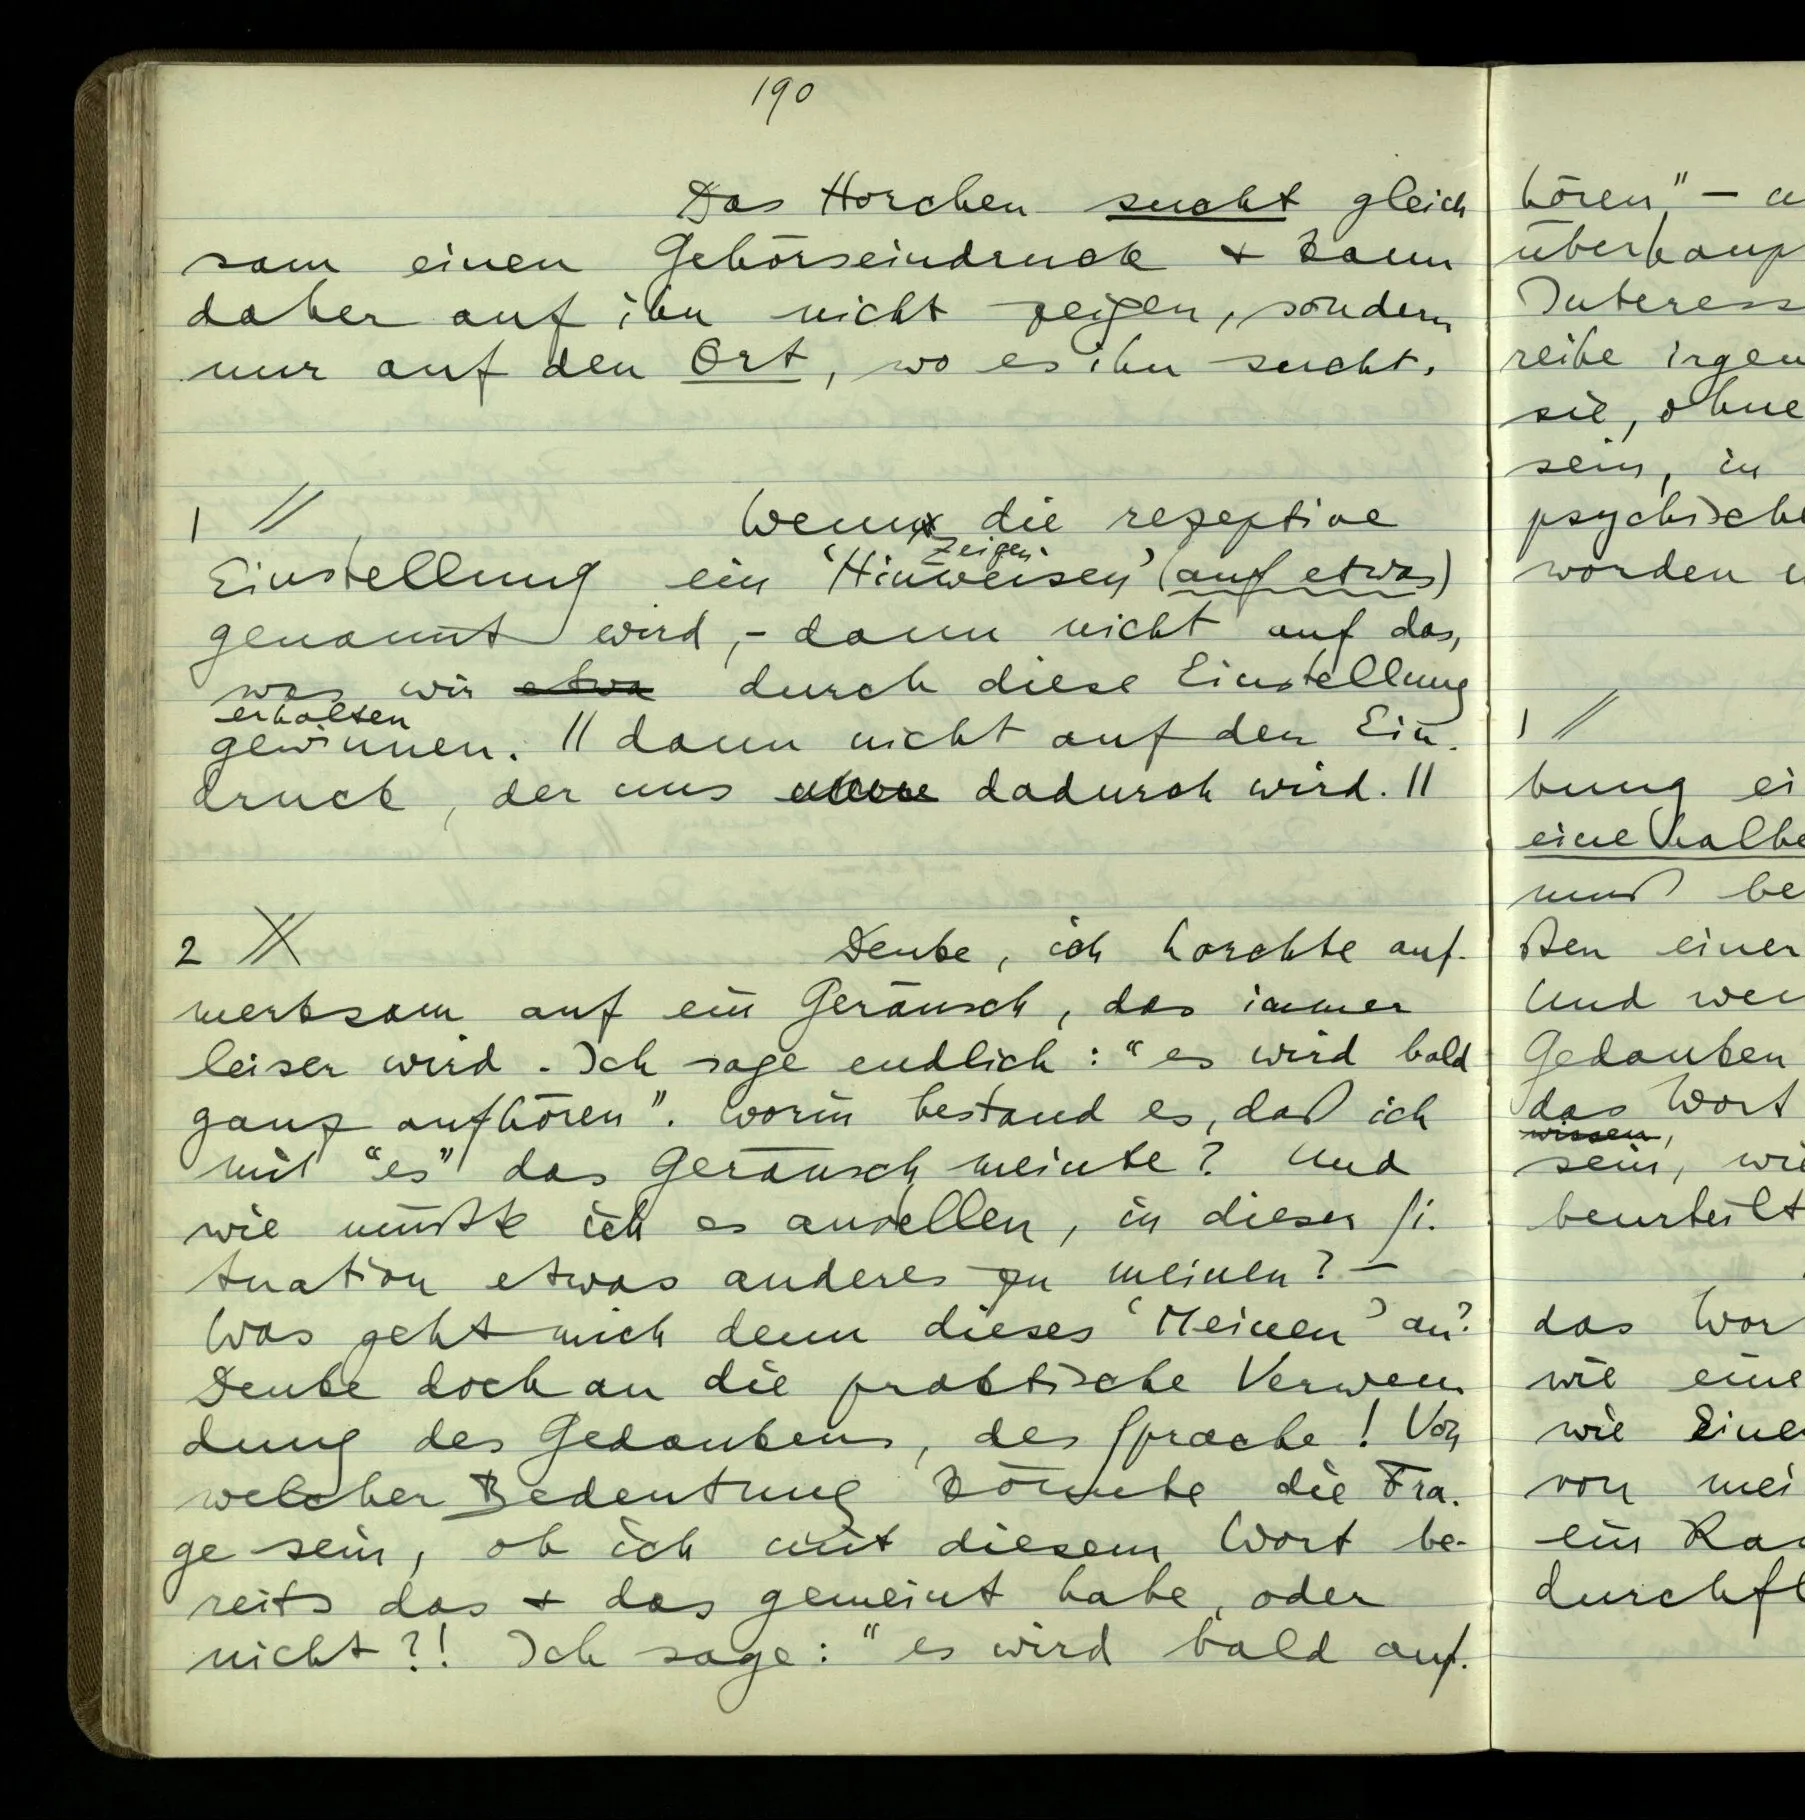 190
Das Horchen sucht gleich
sam einen Gehörseindruck & kann
daher auf ihn nicht zeigen, sondern
nur auf den Ort, wo es ihn sucht.
1 // Wenn die rezeptive
Zeigen
Einstellung ein 'Hinweisen' (auf etwas)
genannt wird, – dann nicht auf das,
was wir etwa durch diese Einstellung
erhalten
gewinnen. // dann nicht auf den Ein-
druck, der uns dadurch wird. //
2 Denke, ich horchte auf-
merksam auf ein Geräusch, das immer
leiser wird. Ich sage endlich: "es wird bald
ganz aufhören". Worin bestand es, daß ich
mit "es" das Geräusch meinte? Und
wie müßte ich es anstellen, in dieser Si-
tuation etwas anderes zu meinen? –
Was geht mich denn dieses 'Meinen' an?
Denke doch an die praktische Verwen
dung des Gedankens, der Sprache! Von
welcher Bedeutung könnte die Fra-
ge sein, ob ich mit diesem Wort be-
reits das & das gemeint habe, oder
nicht?! Ich sage: "es wird bald auf-
hören," –
Interess
reihe irgen
sie, ohne
sein, in
psychische
worden
1 //
bung ei
eine halbe
muß be
sten einer
Und wen
Gedanken
das Wort
wissen,
sein, wie
beurteilt
das Wor
wie eine
wie Eine
von mei
ein
durchfl